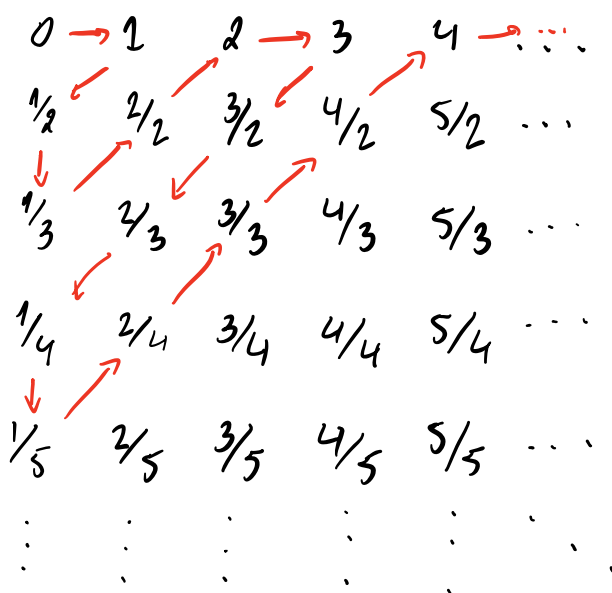 0 → 1 2 → 3 4 → ...
1/2 2/2 3/2 4/2 5/2 ...
1/3 2/3 3/3 4/3 5/3 ...
1/4 2/4 3/4 4/4 5/4 ...
1/5 2/5 3/5 4/5 5/5 ...